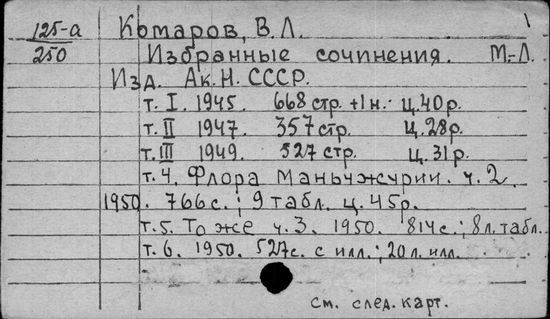 125-а Комаров, В.Л. 1
250 Избранные сочинения. М.-Л.
Изд. Ак.Н. СССР.
т. I. 1945. 668 стр. +1 н. ц.40р.
т. II 1947. 357 стр. ц.28р.
т. III 1949. 527 стр. ц.31р.
т.4. Флора Маньчжурии. ч.2.
1950. 766с.; 9 табл. ц.45р.
т.5. То же ч.3. 1950. 814с.; 8л.табл.
т.6. 1950. 527с. с илл.; 20л. илл.
см. след. карт.